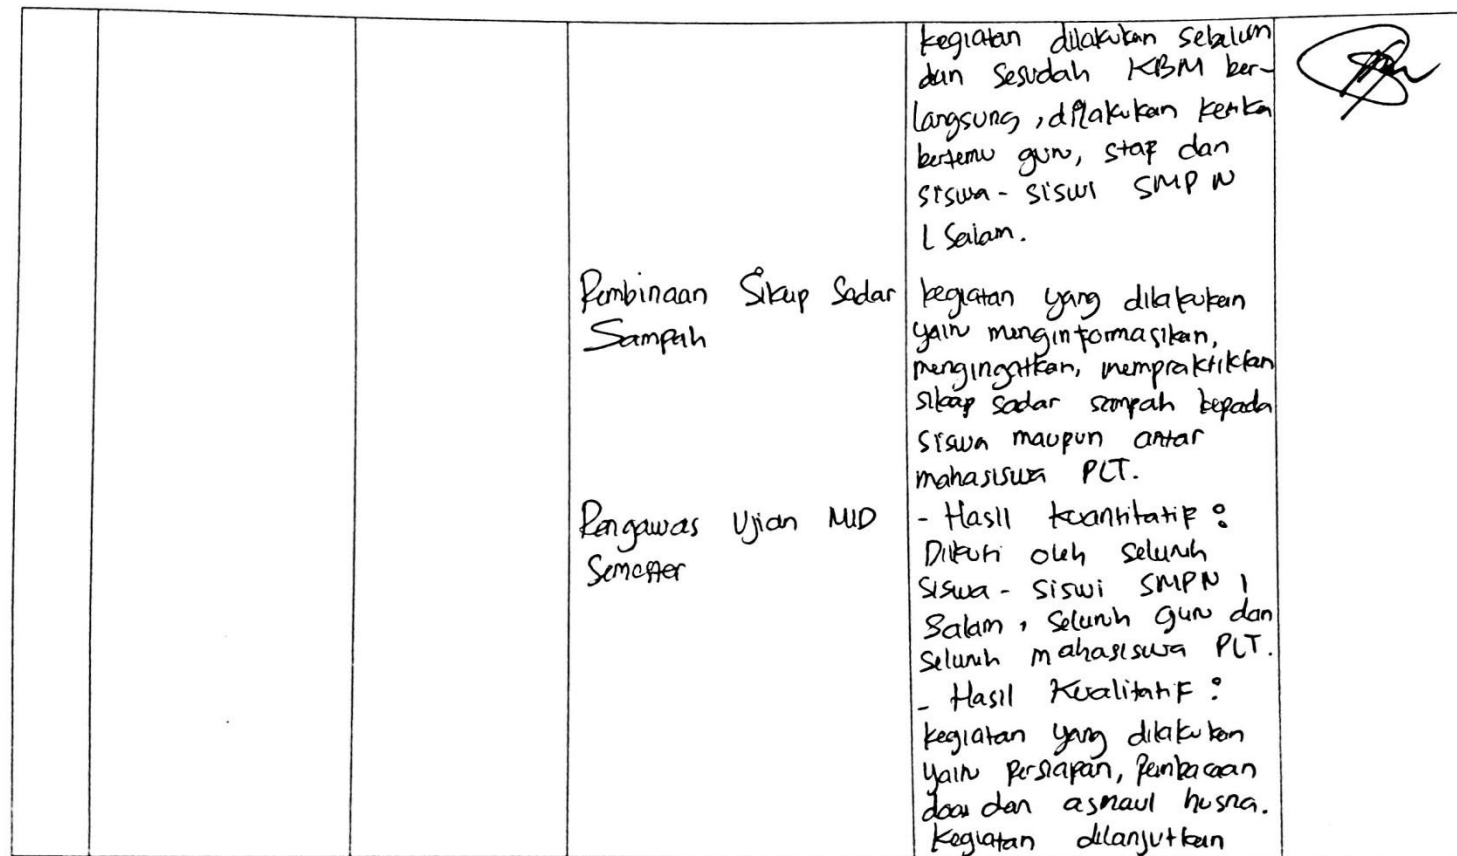 kegiatan dilakukan sebelum
dan sesudah KBM ber-
langsung, dilakukan ketika
bertemu guru, staf dan
siswa - siswi SMP N
1 Salam.
Pembinaan Sikap Sadar
Sampah
kegiatan yang dilakukan
yaitu menginformasikan,
mengingatkan, mempraktikkan
sikap sadar sampah kepada
siswa maupun antar
mahasiswa PLT.
Pengawas Ujian MID
Semester
- Hasil kuantitatif :
Diikuti oleh seluruh
siswa - siswi SMPN 1
Salam, seluruh guru dan
seluruh mahasiswa PLT.
- Hasil Kualitatif :
kegiatan yang dilakukan
yaitu persiapan, pembacaan
doa dan asmaul husna.
kegiatan dilanjutkan